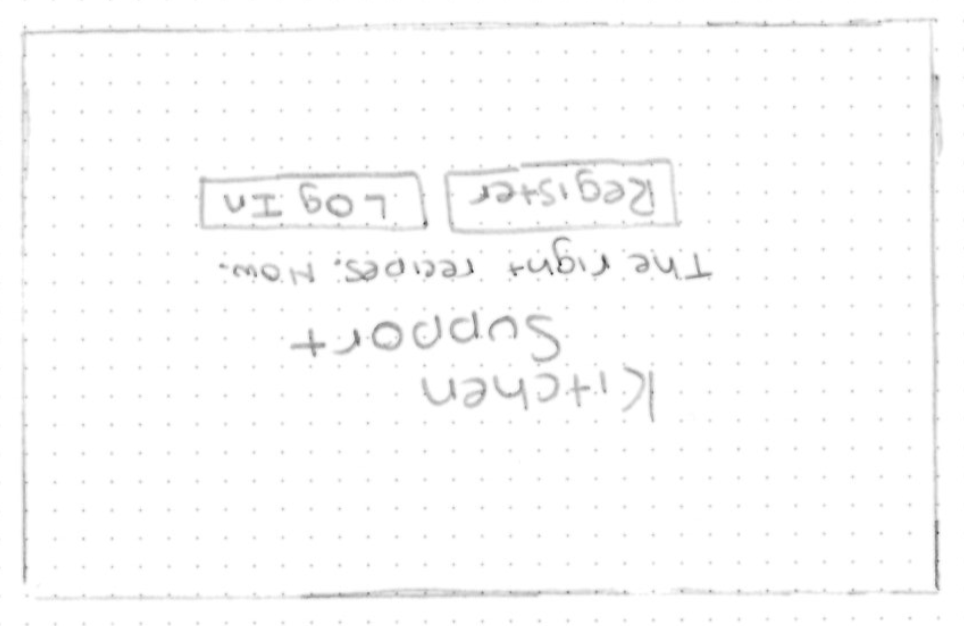 Kitchen
Support
The right recipes. Now.
Register Log In